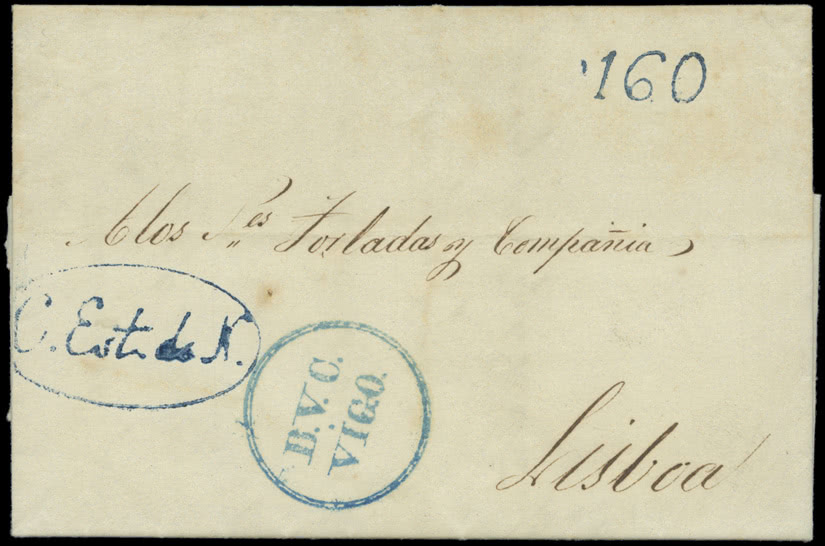 160
A los S.es Torladas y Compañia
C. Est. do N.
B.V.C.
VIGO.
Lisboa